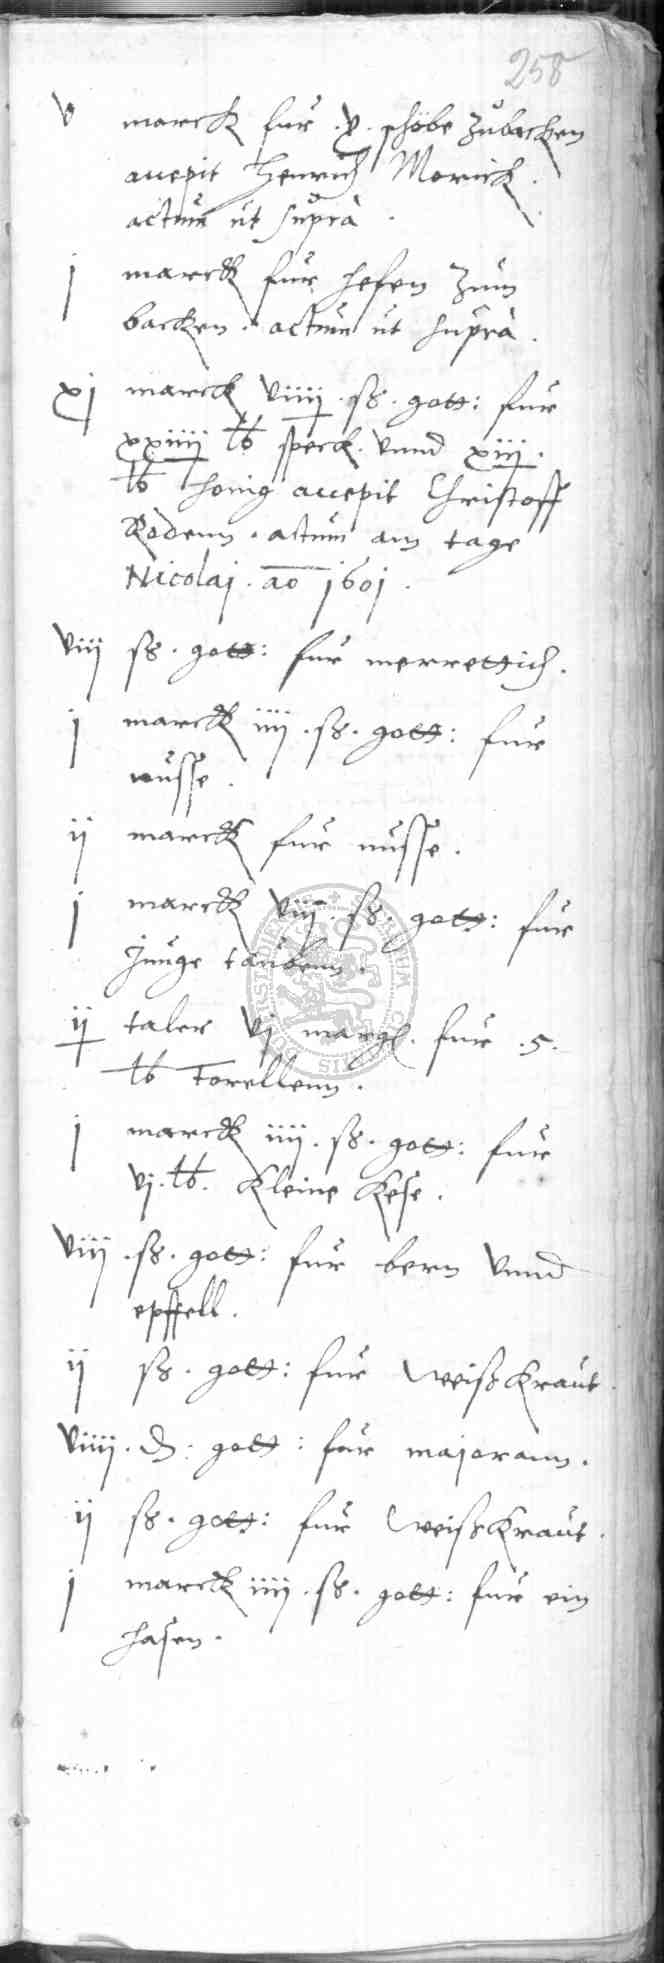 258
v marck fur .x. schöbe zubacken
accepit Henrich Morick.
actum ut supra.
j marck fur hefen zum
backen. actum ut supra.
xj marck viiij. ss. gott: fur
xxiiij lb speck. vnnd xiij.
lb honig accepit Christoff
Rodenn. actum am tage
Nicolaj. ao 1601.
viij ss. gott: fur merrettich.
j marck iiij. ss. gott: fur
nusse.
ij marck fur nusse.
j marck viij. ss. gott: fur
Junge taubenn.
ij taler vj margl. fur .5.
lb Forellenn.
j marck iiij. ss. gott: fur
vj. lb. kleine kese.
viij. ss. gott: fur bern vnnd
epffell.
ij ss. gott: fur weißkraut.
viiij. d: gott: fur majorann.
ij ss. gott: fur weißkraut.
j marck iiij. ss. gott: fur ein
hasen.